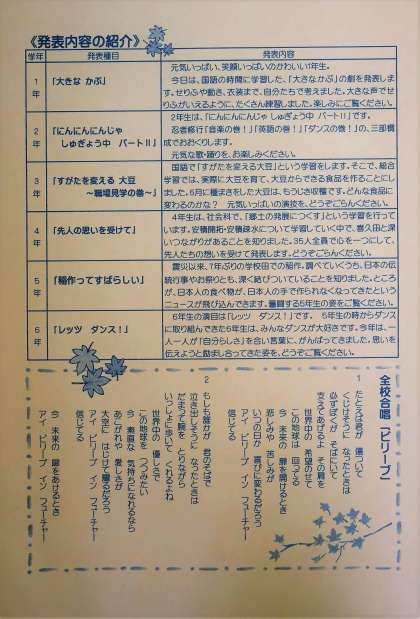 《発表内容の紹介》
学年 発表種目 発表内容
1年 「大きな かぶ」
元気いっぱい、笑顔いっぱいのかわいい1年生。
今日は、国語の時間に学習した、「大きなかぶ」の劇を発表しま
す。せりふや動き、衣装まで、自分たちで考えました。大きな声でせ
りふがいえるように、たくさん練習しました。楽しみにご覧ください。
2年 「にんにんにんじゃ
しゅぎょう中 パートⅡ」
2年生は、「にんにんにんじゃ しゅぎょう中 パートⅡ」です。
忍者修行「音楽の巻!」「英語の巻!」「ダンスの巻!」の、三部構
成でおおくりします。
元気な歌・踊りを、お楽しみください。
3年 「すがたを変える 大豆
~職場見学の巻~」
国語で「すがたを変える大豆」という学習をします。そこで、総合
学習では、実際に大豆を育て、大豆からできる食品を作ることにし
ました。6月に種まきをした大豆は、もうじき収穫です。どんな食品に
変わるのかな? 元気いっぱいの演技を、どうぞごらんください。
4年 「先人の思いを受けて」
4年生は、社会科で、「郷土の発展につくす」という学習を行って
います。安積開拓・安積疎水について学習していく中で、喜久田と深
いつながりがあることを知りました。35人全員で心を一つにして、
先人たちの想いを受けて発表します。どうぞごらんください。
5年 「稲作ってすばらしい」
震災以来、7年ぶりの学校田での稲作。調べていくうち、日本の伝
統行事やお祭りとも、深く結びついていることを知りました。ところ
が、日本人の食べ物が、日本人の手で作られなくなってきたという
ニュースが飛び込んできます。奮闘する5年生の姿をご覧ください。
6年 「レッツ ダンス!」
6年生の演目は「レッツ ダンス!」です。 5年生の時からダンス
に取り組んできた6年生は、みんなダンスが大好きです。今年は、一
人一人が「自分らしさ」を合い言葉に、がんばってきました。思いを
伝えようと励まし合ってきた姿を、どうぞご覧ください。
全校合唱「ビリーブ」
1
たとえば君が 傷ついて
くじけそうに なったときは
必ずぼくが そばにいて
支えてあげるよ その肩を
世界中の 希望のせて
この地球は 回ってる
今 未来の 扉を開けるとき
悲しみや 苦しみが
いつの日か 喜びに変わるだろう
アイ ビリーブ イン フューチャー
信じてる
2
もしも誰かが 君のそばで
泣き出しそうに なったときは
だまって腕を とりながら
いっしょに歩いて くれるよね
世界中の 優しさで
この地球を つつみたい
今 素直な 気持ちになれるなら
あこがれや 愛しさが
大空に はじけて耀るだろう
アイ ビリーブ イン フューチャー
信じてる
今 未来の 扉をあけるとき
アイ ビリーブ イン フューチャー